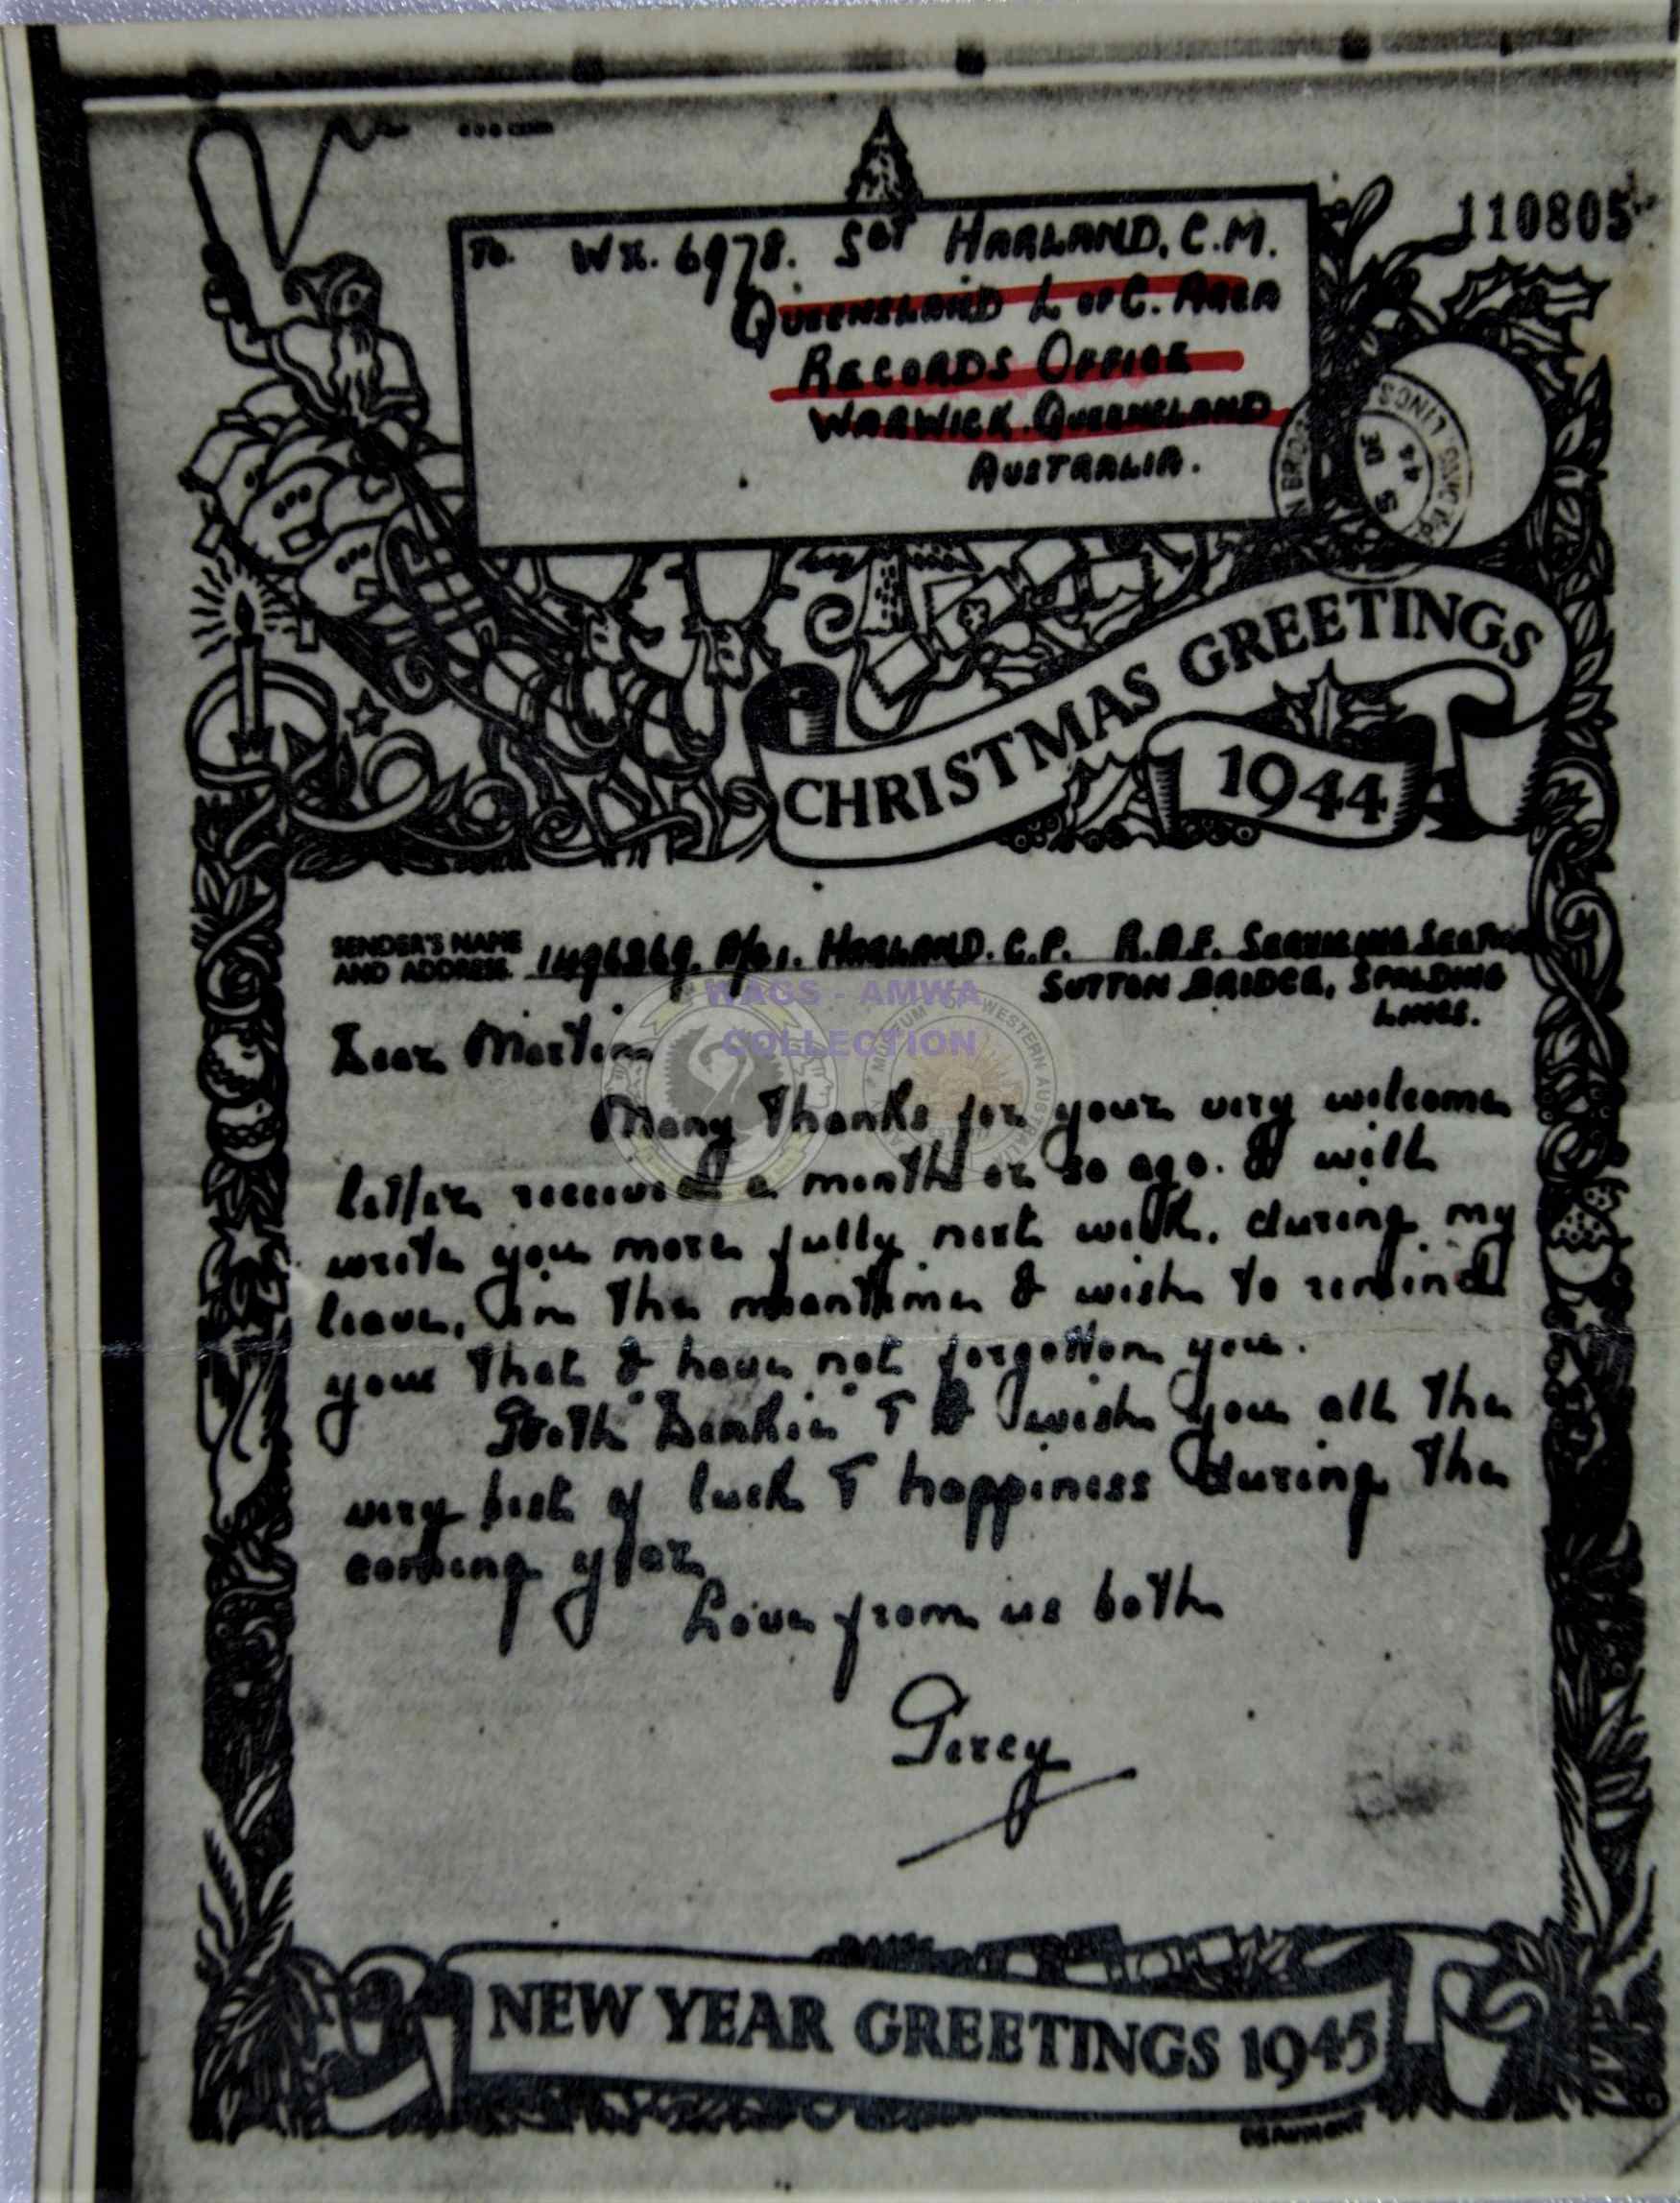 110805
To. WX. 6978. SGT HARLAND, C.M.
QUEENSLAND L OF C. AREA
RECORDS OFFICE
WARWICK. QUEENSLAND
AUSTRALIA.
CHRISTMAS GREETINGS
1944
SENDER'S NAME
AND ADDRESS. HARLAND. C.P. R.A.F. SERVICING SECTION
SUTTON BRIDGE, SPALDING
LINCS.
WAGS - AMWA
COLLECTION
Dear Martin
Many thanks for your very welcome
letter received a month or so ago. I will
write you more fully next week, during my
leave, in the meantime I wish to remind
you that I have not forgotten you.
Both & I wish you all the
very best of luck & happiness during the
coming year
Love from us both
Percy
NEW YEAR GREETINGS 1945